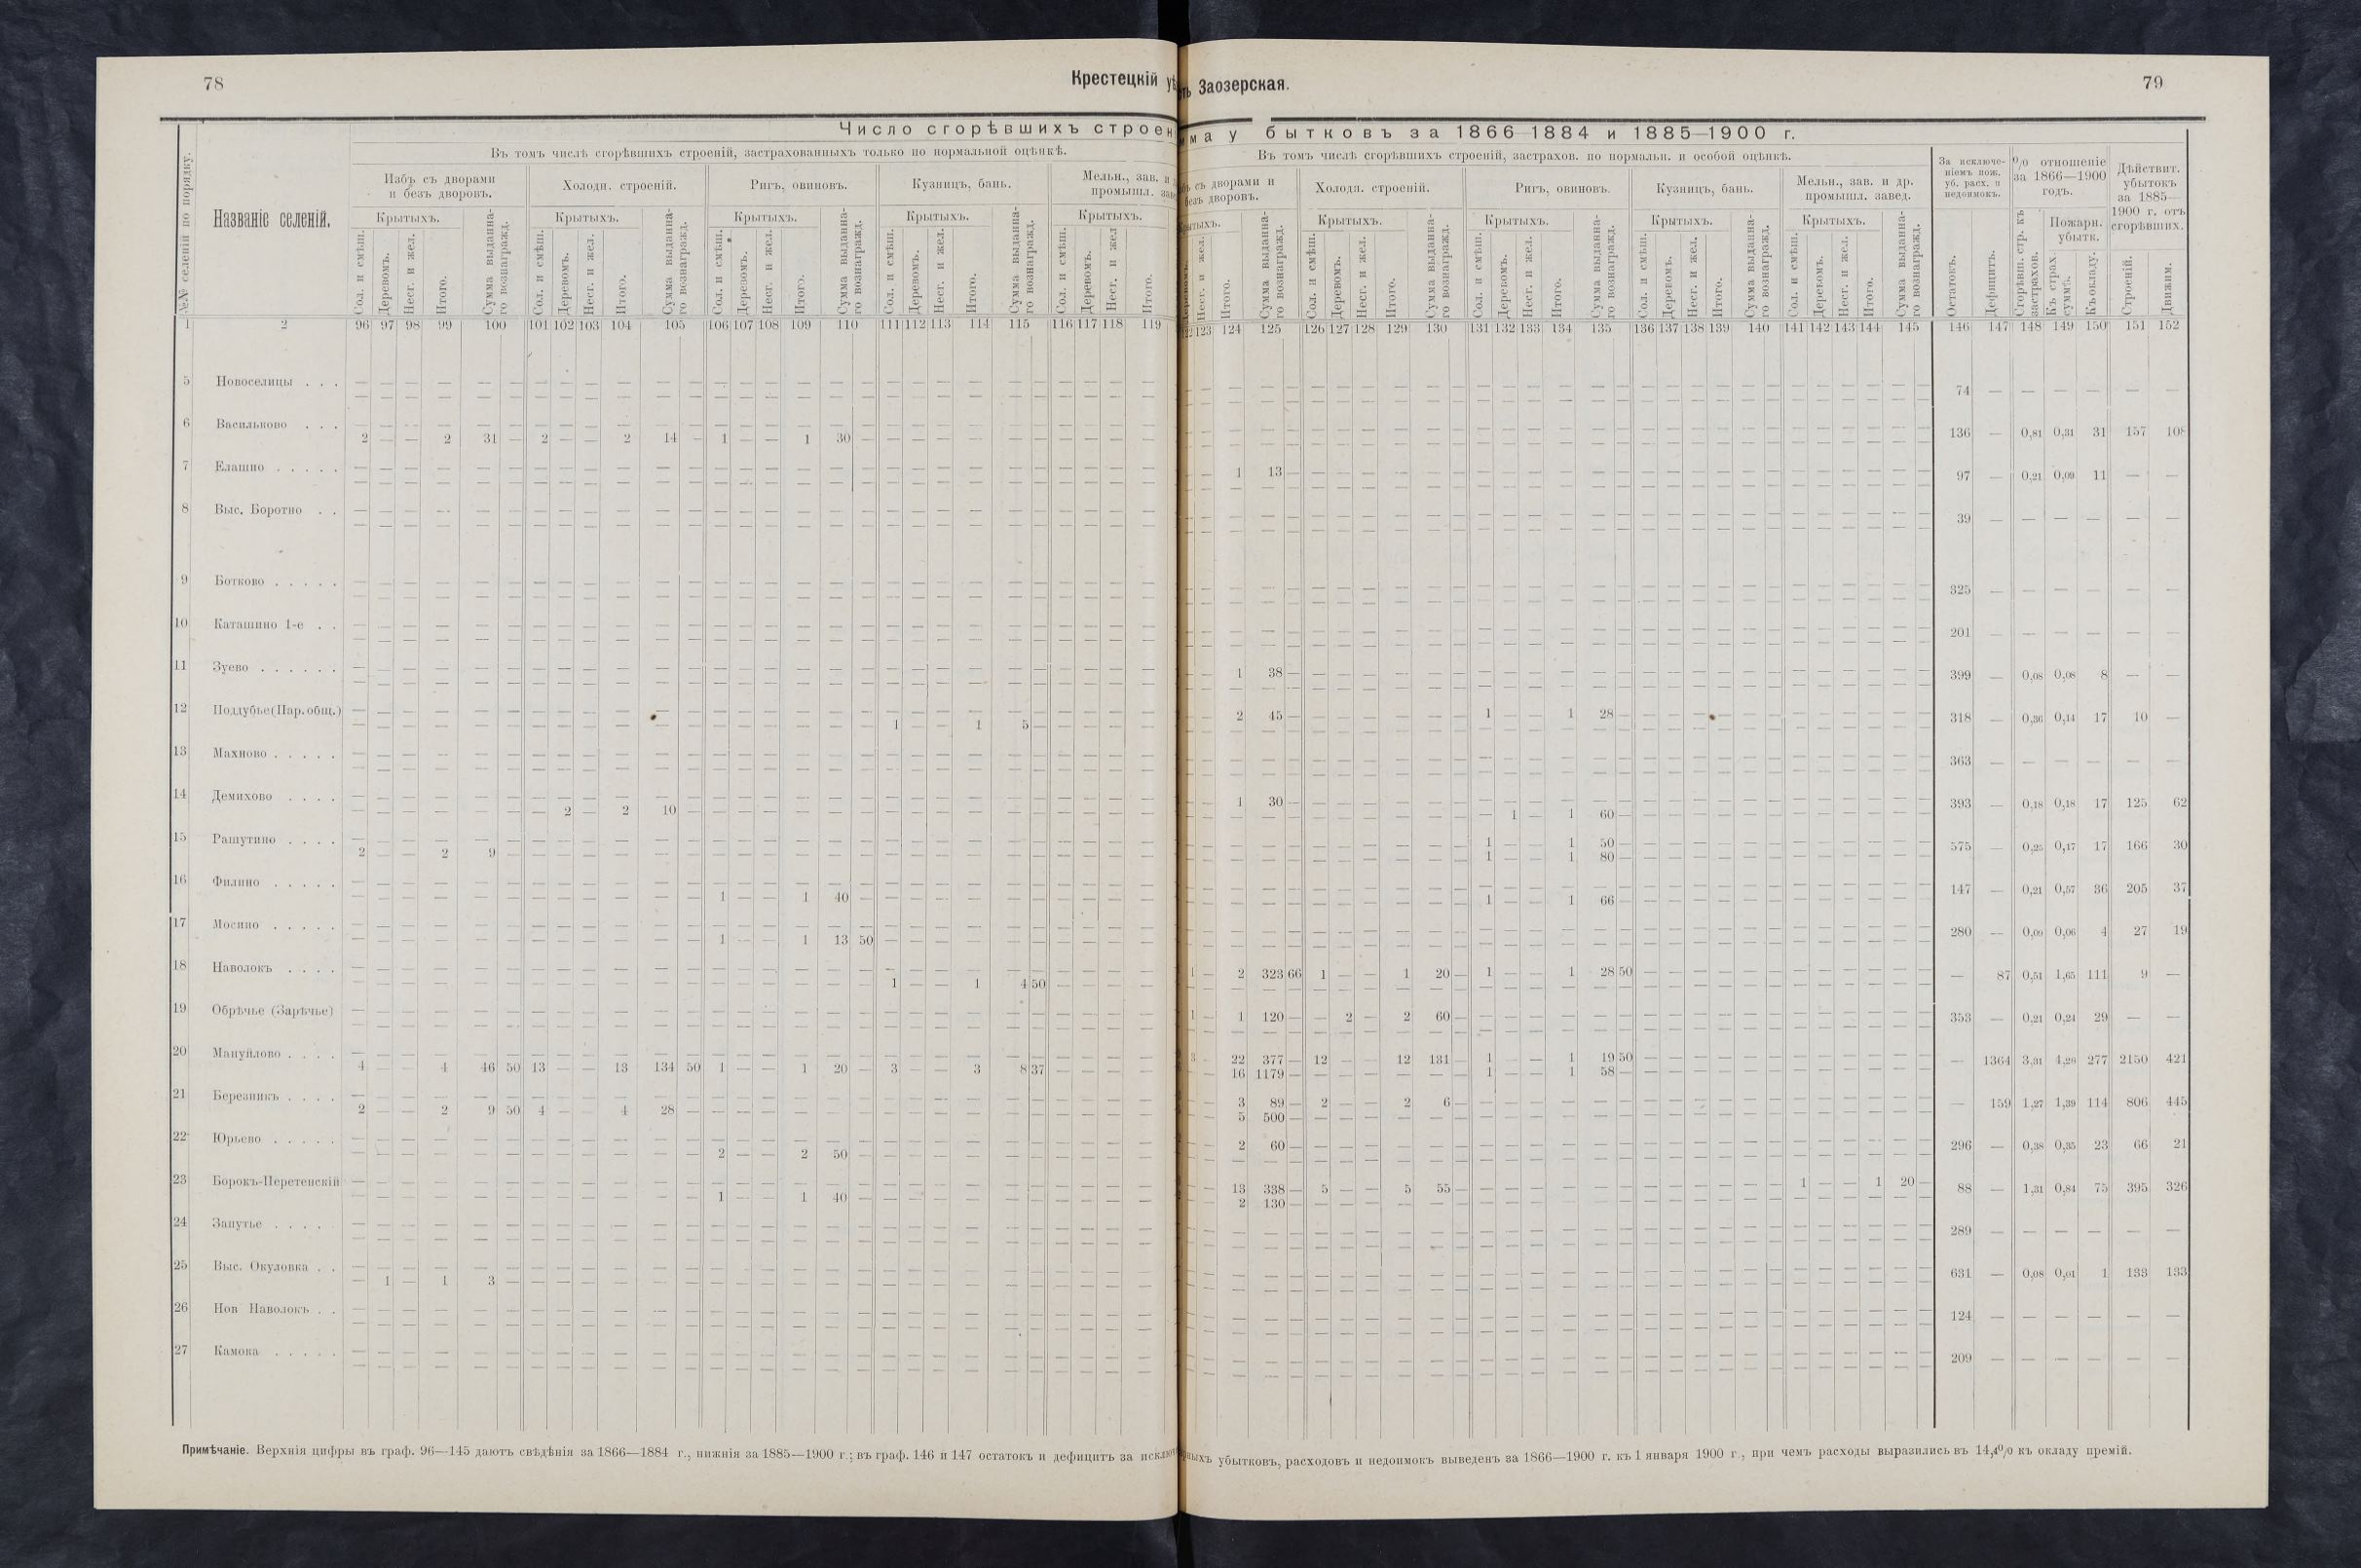 78
Крестецкій уѣ
ть Заозерская.
79
Число сгорѣвшихъ строен
мма убытковъ за 1866—1884 и 1885—1900 г.
Въ томъ числѣ сгорѣвшихъ строеній, застрахованныхъ только по нормальной оцѣнкѣ.
Въ томъ числѣ сгорѣвшихъ строеній, застрахов. по нормальн. и особой оцѣнкѣ.
№№ селеній по порядку.
Названіе селеній.
Избъ съ дворами и безъ дворовъ.
Холодн. строеній.
Ригъ, овиновъ.
Кузницъ, бань.
Мельн., зав. и
промышл. зав
съ дворами и
безъ дворовъ.
Холодн. строеній.
Ригъ, овиновъ.
Кузницъ, бань.
Мельн., зав. и др. промышл. завед.
За исключеніемъ пож. уб. расх. и недоимокъ.
% отношеніе за 1866—1900 годъ.
Дѣйствит. убытокъ за 1885—1900 г. отъ сгорѣвшихъ.
Крытыхъ. Крытыхъ. Крытыхъ. Крытыхъ. Крытыхъ.
Крытыхъ. Крытыхъ. Крытыхъ. Крытыхъ.
Пожарн. убытк.
Сол. и смѣш. Деревомъ. Несг. и жел. Итого. Сумма выданнаго вознагражд.
Сол. и смѣш. Деревомъ. Несг. и жел. Итого. Сумма выданнаго вознагражд.
Сол. и смѣш. Деревомъ. Несг. и жел. Итого. Сумма выданнаго вознагражд.
Сол. и смѣш. Деревомъ. Несг. и жел. Итого. Сумма выданнаго вознагражд.
Сол. и смѣш. Деревомъ. Несг. и жел Итого.
Несг. и жел. Итого. Сумма выданнаго вознагражд.
Сол. и смѣш. Деревомъ. Несг. и жел. Итого. Сумма выданнаго вознагражд.
Сол. и смѣш. Деревомъ. Несг. и жел. Итого. Сумма выданнаго вознагражд.
Сол. и смѣш. Деревомъ. Несг. и жел. Итого. Сумма выданнаго вознагражд.
Сол. и смѣш. Деревомъ. Несг. и жел. Итого. Сумма выданнаго вознагражд.
Остатокъ. Дефицитъ. Сгорѣвш. стр. къ застрахов. Къ страх. суммѣ. Къ окладу. Строеній. Движим.
1 2 96 97 98 99 100 101 102 103 104 105 106 107 108 109 110 111 112 113 114 115 116 117 118 119
22 123 124 125 126 127 128 129 130 131 132 133 134 135 136 137 138 139 140 141 142 143 144 145 146 147 148 149 150 151 152
5 Новоселицы . . . — — — 74 — — — — — —
6 Васильково . . . 136 — 0,81 0,31 31 157 108
2 — — 2 31 — 2 — — 2 14 — 1 — — 1 30 —
7 Елашно . . . . . 1 13 — 97 — 0,21 0,09 11 — —
8 Выс. Боротно . . 39 — — — — — —
9 Ботково . . . . . 325 — — — — — —
10 Каташино 1-е . . 201 — — — — — —
11 Зуево . . . . . . 1 38 — 399 — 0,08 0,08 8 — —
12 Поддубье (Пар. общ.) 2 45 — 1 — — 1 28 — 318 — 0,36 0,14 17 10 —
1 — — 1 5 —
13 Махново . . . . . 363 — — — — — —
14 Демихово . . . . 1 30 — 393 — 0,18 0,18 17 125 62
— 2 — 2 10 — — 1 — 1 60 —
15 Рашутино . . . . 1 — — 1 50 — 575 — 0,25 0,17 17 166 30
2 — — 2 9 — 1 — — 1 80 —
16 Филино . . . . . 147 — 0,21 0,57 36 205 37
1 — — 1 40 — 1 — — 1 66 —
17 Мосино . . . . . 280 — 0,09 0,06 4 27 19
1 — — 1 13 50
18 Наволокъ . . . . 1 — 2 323 66 1 — — 1 20 — 1 — — 1 28 50 — 87 0,51 1,65 111 9 —
1 — — 1 4 50
19 Обрѣчье (Зарѣчье) 1 — 1 120 — — 2 — 2 60 — 353 — 0,21 0,24 29 — —
20 Мануйлово . . . . 3 — 22 377 — 12 — — 12 131 — 1 — — 1 19 50 — 1364 3,31 4,28 277 2150 421
4 — — 4 46 50 13 — — 13 134 50 1 — — 1 20 — 3 — — 3 8 37 — 16 1179 — 1 — — 1 58 —
21 Березникъ . . . . 3 89 — 2 — — 2 6 — — 159 1,27 1,39 114 806 445
2 — — 2 9 50 4 — — 4 28 — 5 500 —
22 Юрьево . . . . . 2 60 — 296 — 0,38 0,35 23 66 21
2 — — 2 50 —
23 Борокъ-Перетенскій 13 338 — 5 — — 5 55 — 1 — — 1 20 — 88 — 1,31 0,84 75 395 326
1 — — 1 40 — 2 130 —
24 Запутье . . . . 289 — — — — — —
25 Выс. Окуловка . . 631 — 0,08 0,01 1 133 133
— 1 — 1 3 —
26 Нов Наволокъ . . 124 — — — — — —
27 Камока . . . . . 209 — — — — — —
Примѣчаніе. Верхнія цифры въ граф. 96—145 даютъ свѣдѣнія за 1866—1884 г., нижнія за 1885—1900 г; въ граф. 146 и 147 остатокъ и дефицитъ за исклю
рныхъ убытковъ, расходовъ и недоимокъ выведенъ за 1866—1900 г. къ 1 января 1900 г., при чемъ расходы выразились въ 14,4% къ окладу премій.